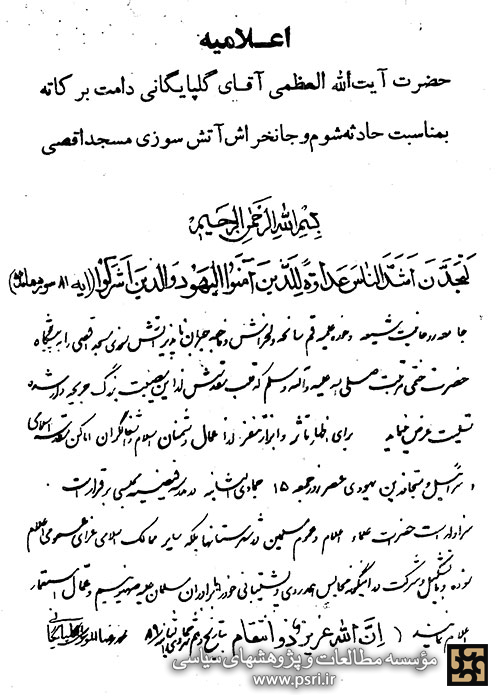 اعلامیه
حضرت آیت‌الله العظمی آقای گلپایگانی دامت برکاته
بمناسبت حادثه شوم و جانخراش آتش سوزی مسجد اقصی
بسم الله الرحمن الرحیم
لتجدن اشد الناس عداوة للذین آمنوا الیهود والذین اشرکوا (آیه ۸۱ سوره مائده)
جامعه روحانیت شیعه و حوزه علمیه قم سانحه دلخراش و فاجعه جبران ناپذیر آتش سوزی مسجد اقصی را به پیشگاه
حضرت ختمی مرتبت صلی الله علیه وآله وسلم که قلب مقدسش از این مصیبت بزرگ جریحه دار شده
تسلیت عرض مینماید برای اظهار تاثر و ابراز تنفر از اعمال دشمنان اسلام و اشغالگران اماکن مقدسه اسلامی
و اسرائیل و متجاوزین یهودی عصر روز جمعه ۱۵ جمادی الثانیه در مدرسه فیضیه مجلسی برقرار است
سزاوار است حضرات علماء اعلام و عموم مسلمین در شهرستانها بلکه سایر ممالک اسلامی عزای عمومی اعلام
نموده و با تشکیل و شرکت در اینگونه مجالس همدردی و پشتیبانی خود را از برادران مسلمان علیه صهیونیسم و عمال استعمار
اعلام نمایند ان الله عزیز ذو انتقام بتاریخ دهم جمادی الثانیه ۸۹ محمدرضا الموسوی الگلپایگانی
مؤسسه مطالعات و پژوهشهای سیاسی
www.psri.ir